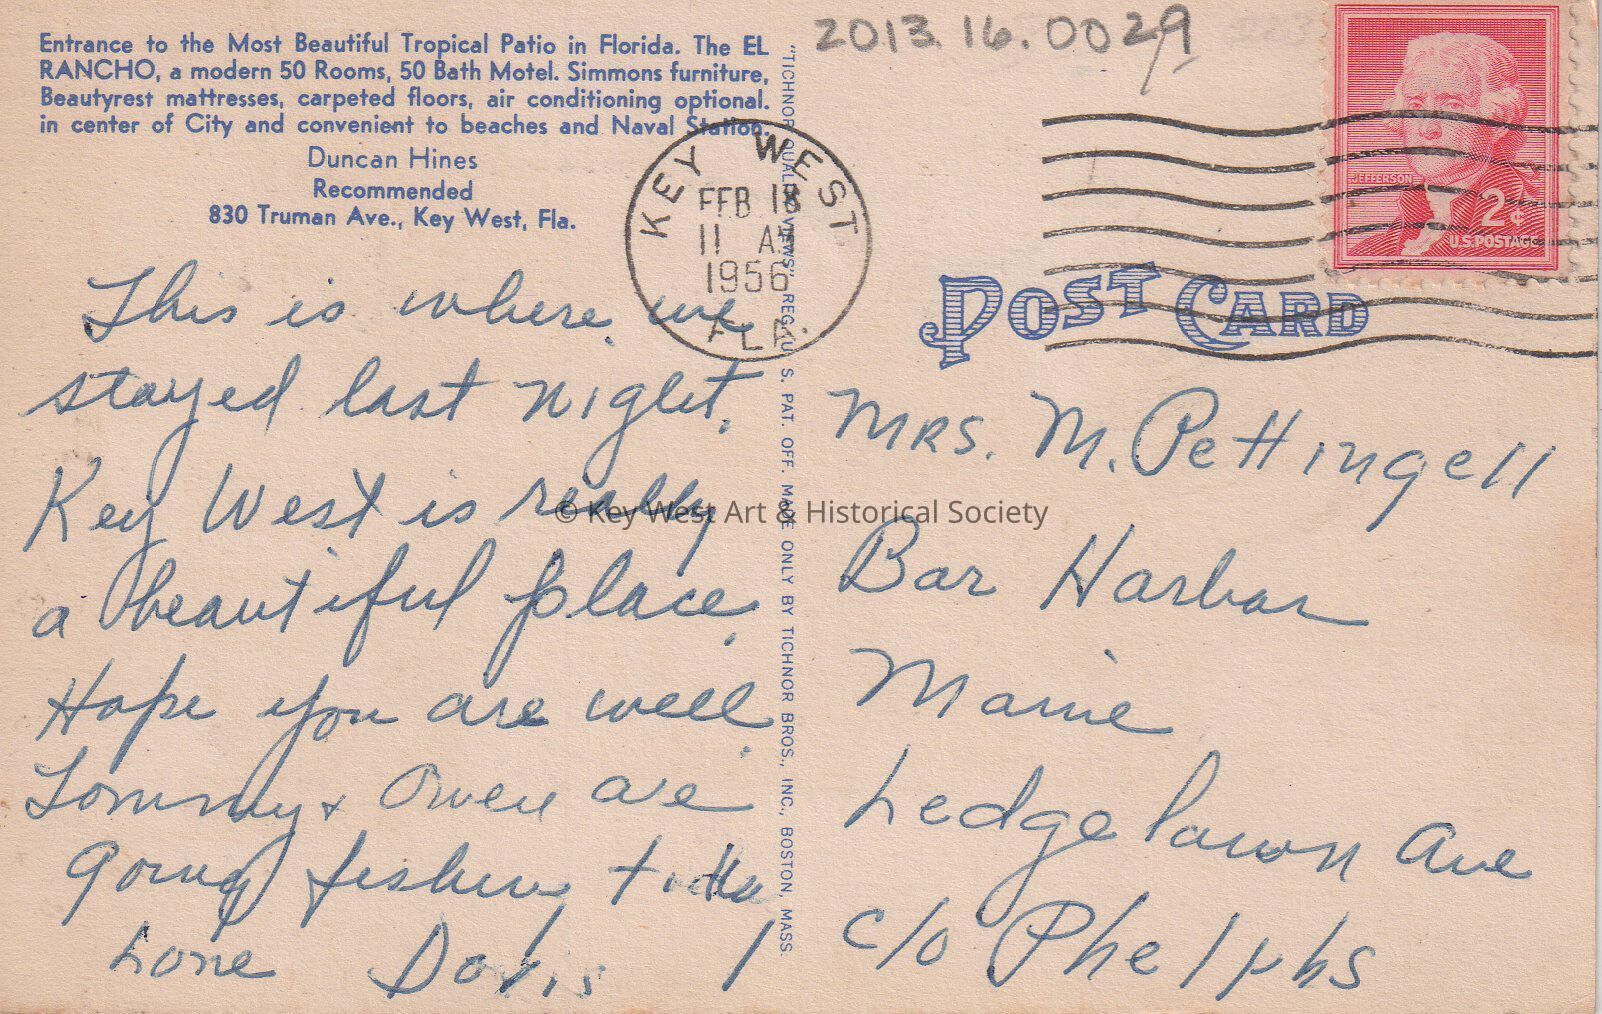 2013.16.0029
Entrance to the Most Beautiful Tropical Patio in Florida. The EL
RANCHO, a modern 50 Rooms, 50 Bath Motel. Simmons furniture,
Beautyrest mattresses, carpeted floors, air conditioning optional.
in center of City and convenient to beaches and Naval Station.
Duncan Hines
Recommended
830 Truman Ave., Key West, Fla.
KEY WEST
FEB 18
11 AM
1956
FLA.
JEFFERSON
2¢
U.S. POSTAGE
POST CARD
"TICHNOR QUALITY VIEWS," REG. U. S. PAT. OFF. MADE ONLY BY TICHNOR BROS., INC., BOSTON, MASS.
This is where we
stayed last night.
Key West is really
a beautiful place.
Hope you are well.
Tommy & Owen are
going fishing
Love Doris
Mrs. M. Pettingell
Bar Harbor
Maine
Ledgelawn Ave
c/o Phelphs
© Key West Art & Historical Society